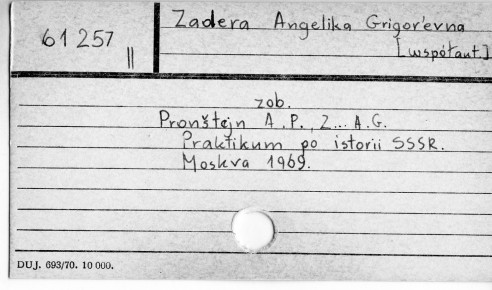 61257
II
Zadera Angelika Grigor'evna
[współaut.]
zob.
Pronštejn A.P., Z... A.G.
Praktikum po istorii SSSR.
Moskva 1969.
DUJ. 693/70. 10 000.